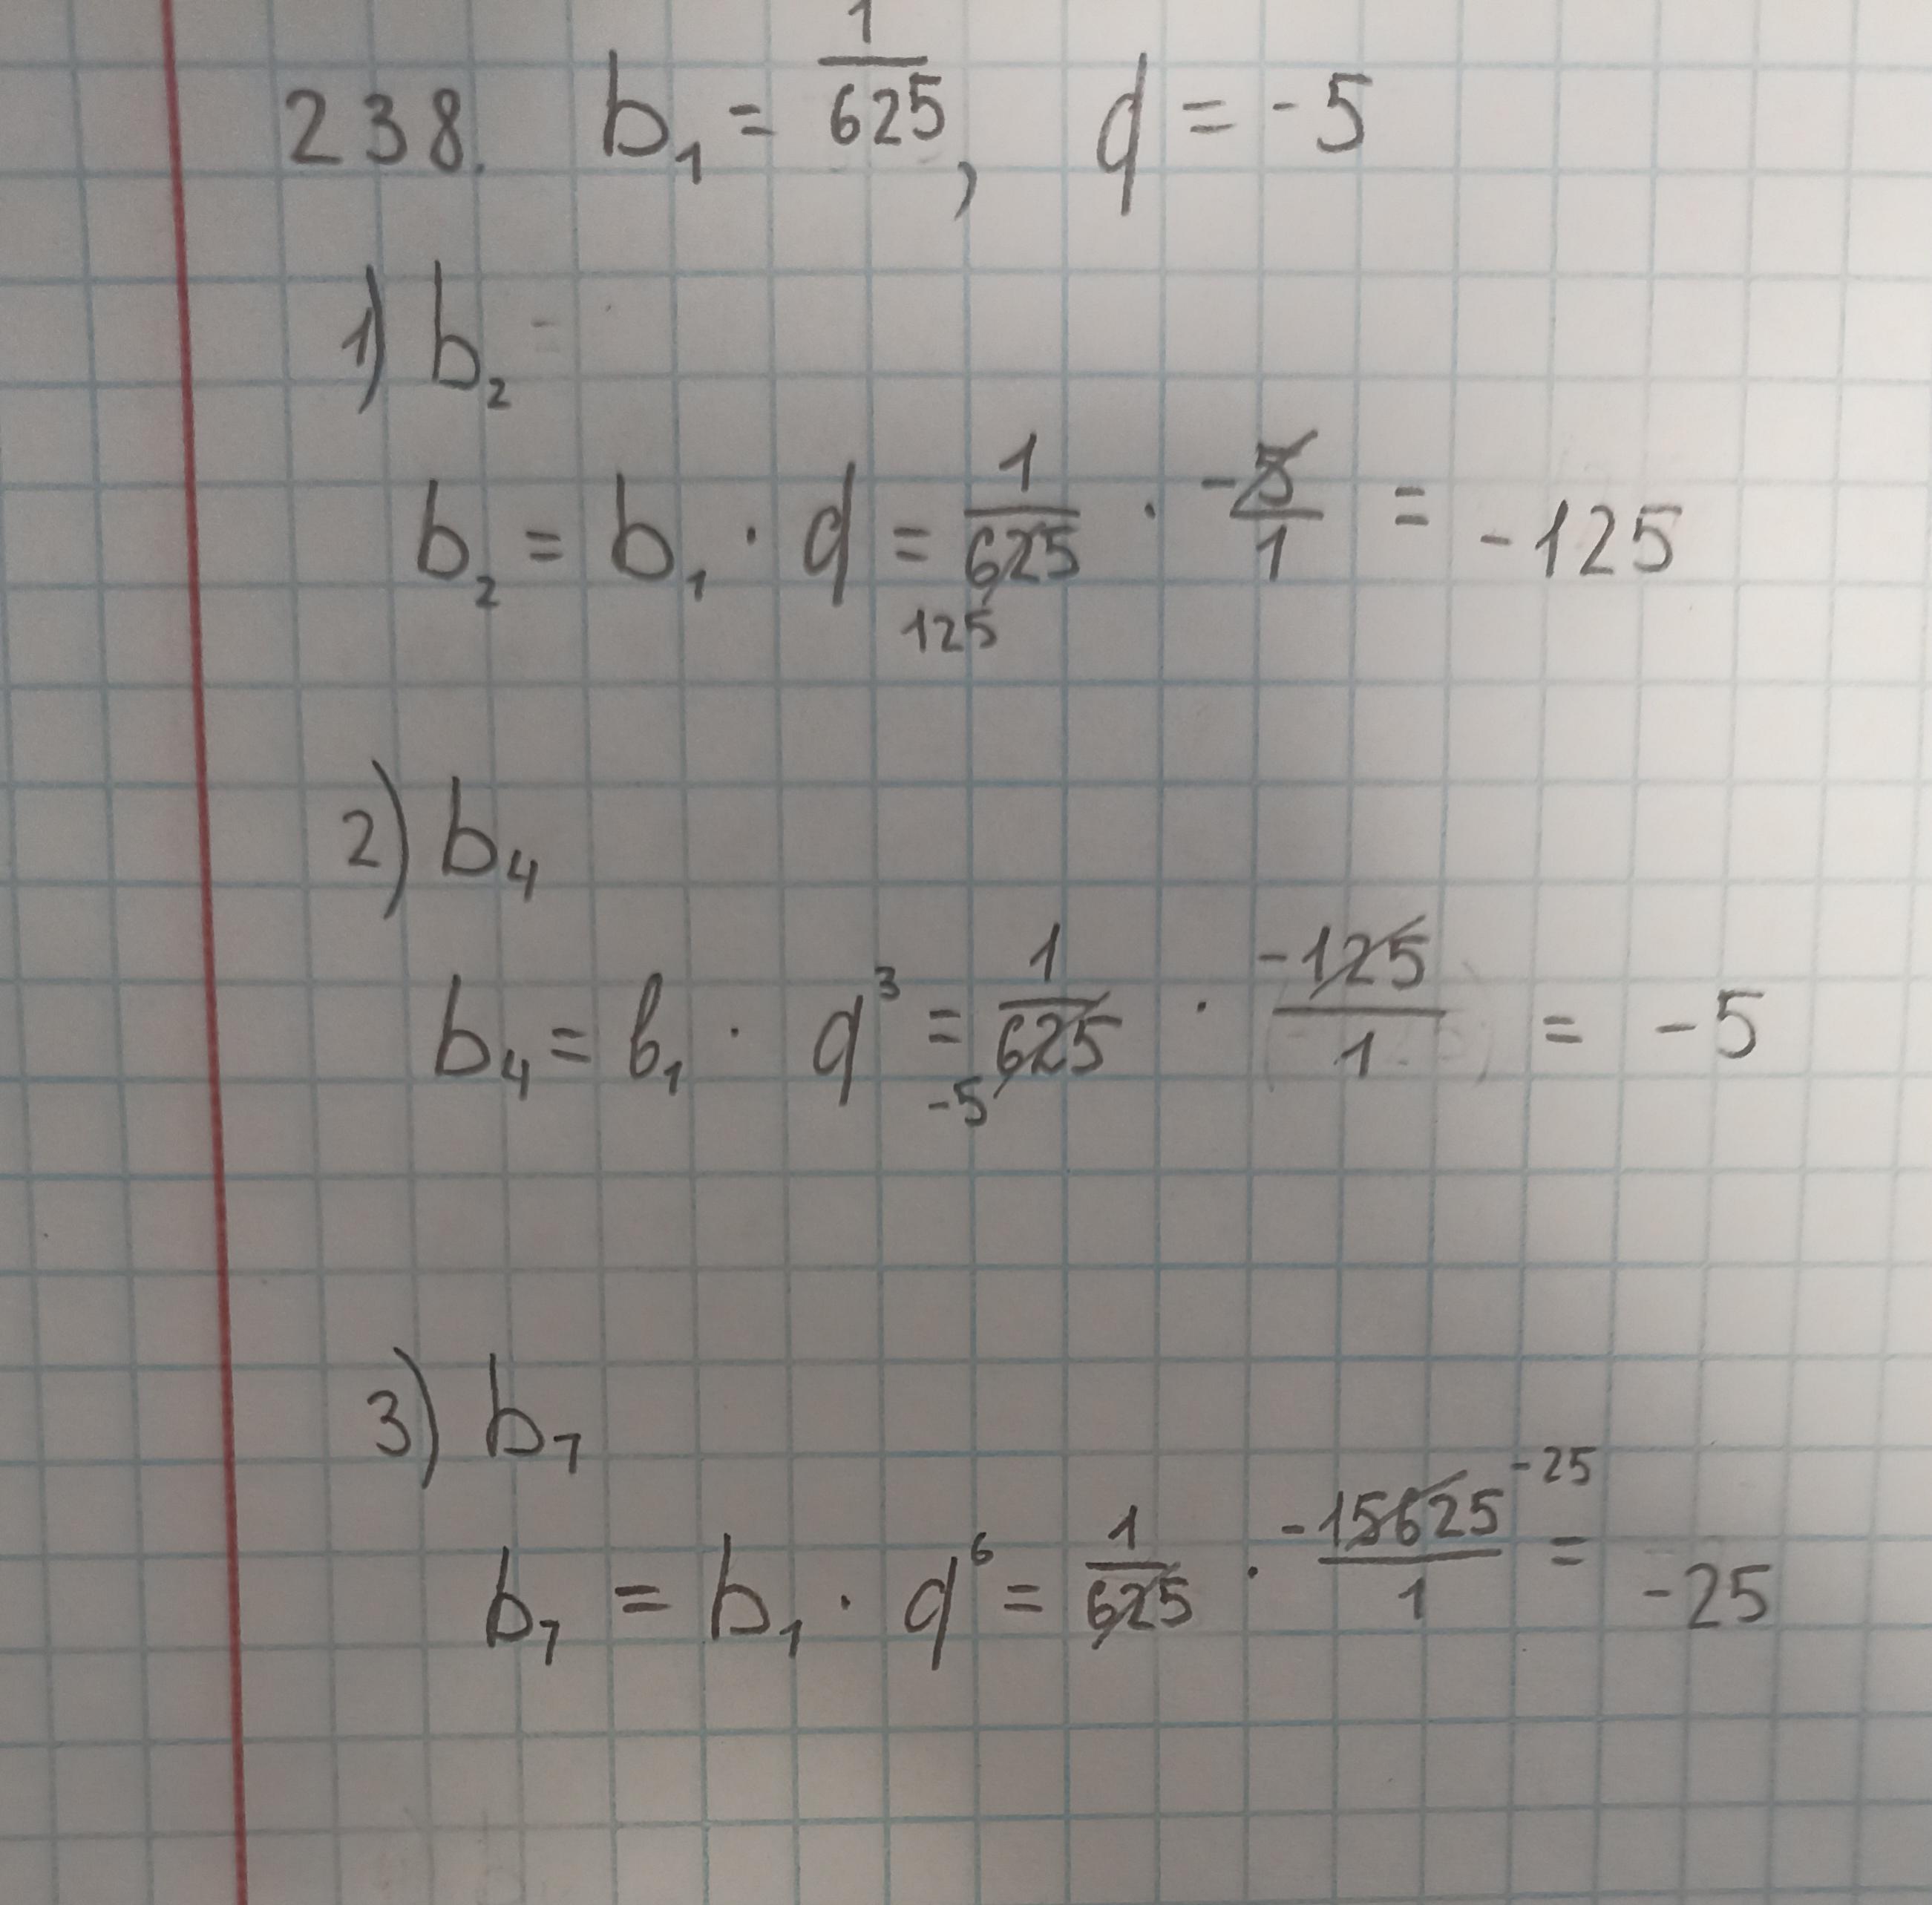 238. b₁ = 1/625, q = -5
1) b₂ =
b₂ = b₁ · q = 1/625 · -5/1 = -125
125
2) b₄
b₄ = b₁ · q³ = 1/625 · -125/1 = -5
-5
3) b₇
-25
b₇ = b₁ · q⁶ = 1/625 · -15625/1 = -25